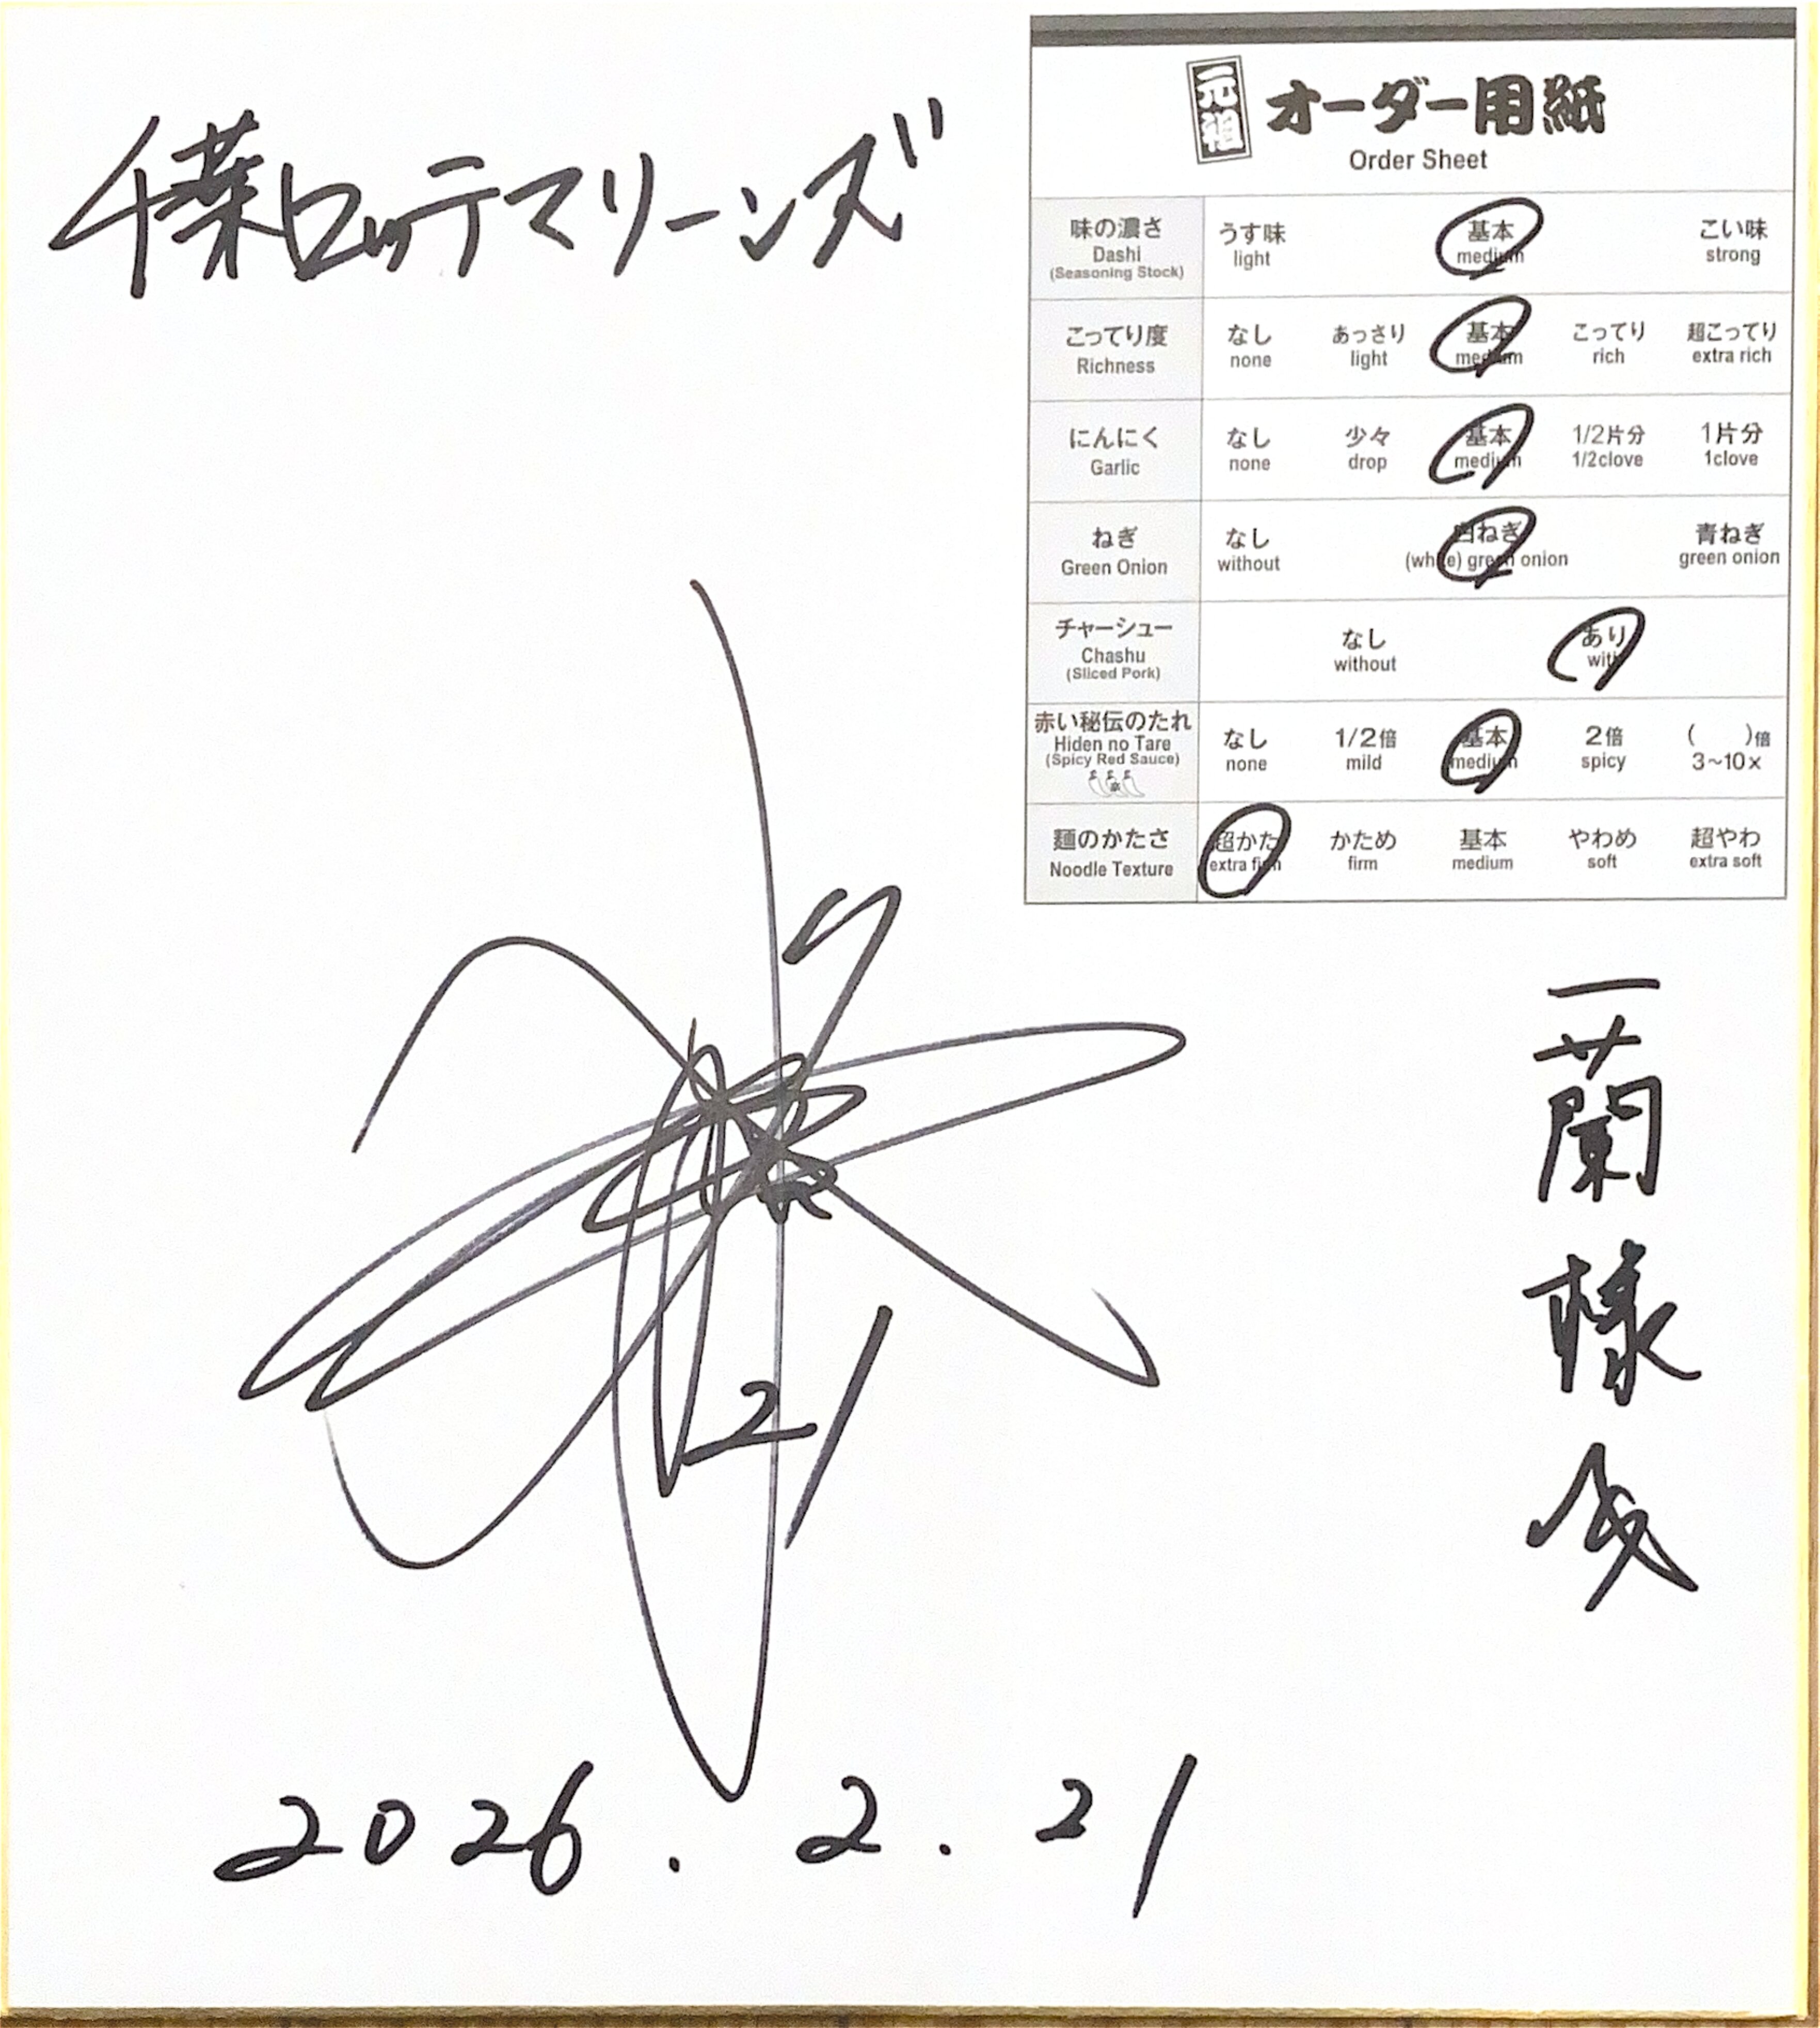 千葉ロッテマリーンズ
元祖 オーダー用紙
Order Sheet
味の濃さ うす味 基本 こい味
Dashi light medium strong
(Seasoning Stock)
こってり度 なし あっさり 基本 こってり 超こってり
Richness none light medium rich extra rich
にんにく なし 少々 基本 1/2片分 1片分
Garlic none drop medium 1/2clove 1clove
ねぎ なし 白ねぎ 青ねぎ
Green Onion without (white) green onion green onion
チャーシュー なし あり
Chashu without with
(Sliced Pork)
赤い秘伝のたれ なし 1/2倍 基本 2倍 ( )倍
Hiden no Tare none mild medium spicy 3~10×
(Spicy Red Sauce)
辛
麺のかたさ 超かた かため 基本 やわめ 超やわ
Noodle Texture extra firm firm medium soft extra soft
一蘭様
21
2026.2.21